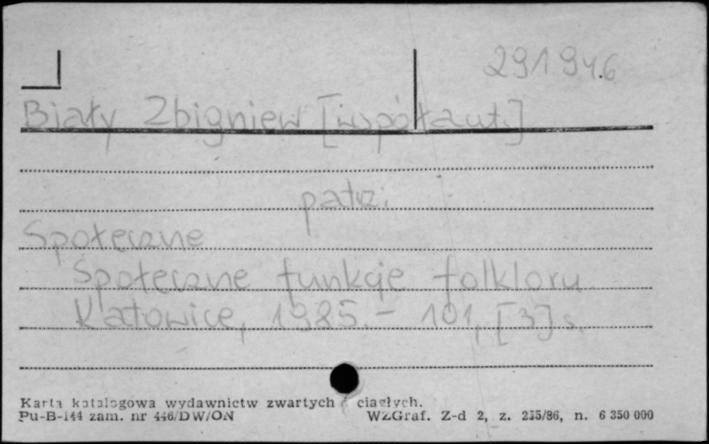 29194.6
Biały Zbigniew [współaut.]
patrz.
Społeczne
Społeczne funkcje folkloru
Katowice, 1985. - 101, [3] s.
Karta katalogowa wydawnictw zwartych i ciągłych.
Pu-B-144 zam. nr 446/DW/ON WZGraf. Z-d 2, z. 235/86, n. 6 350 000